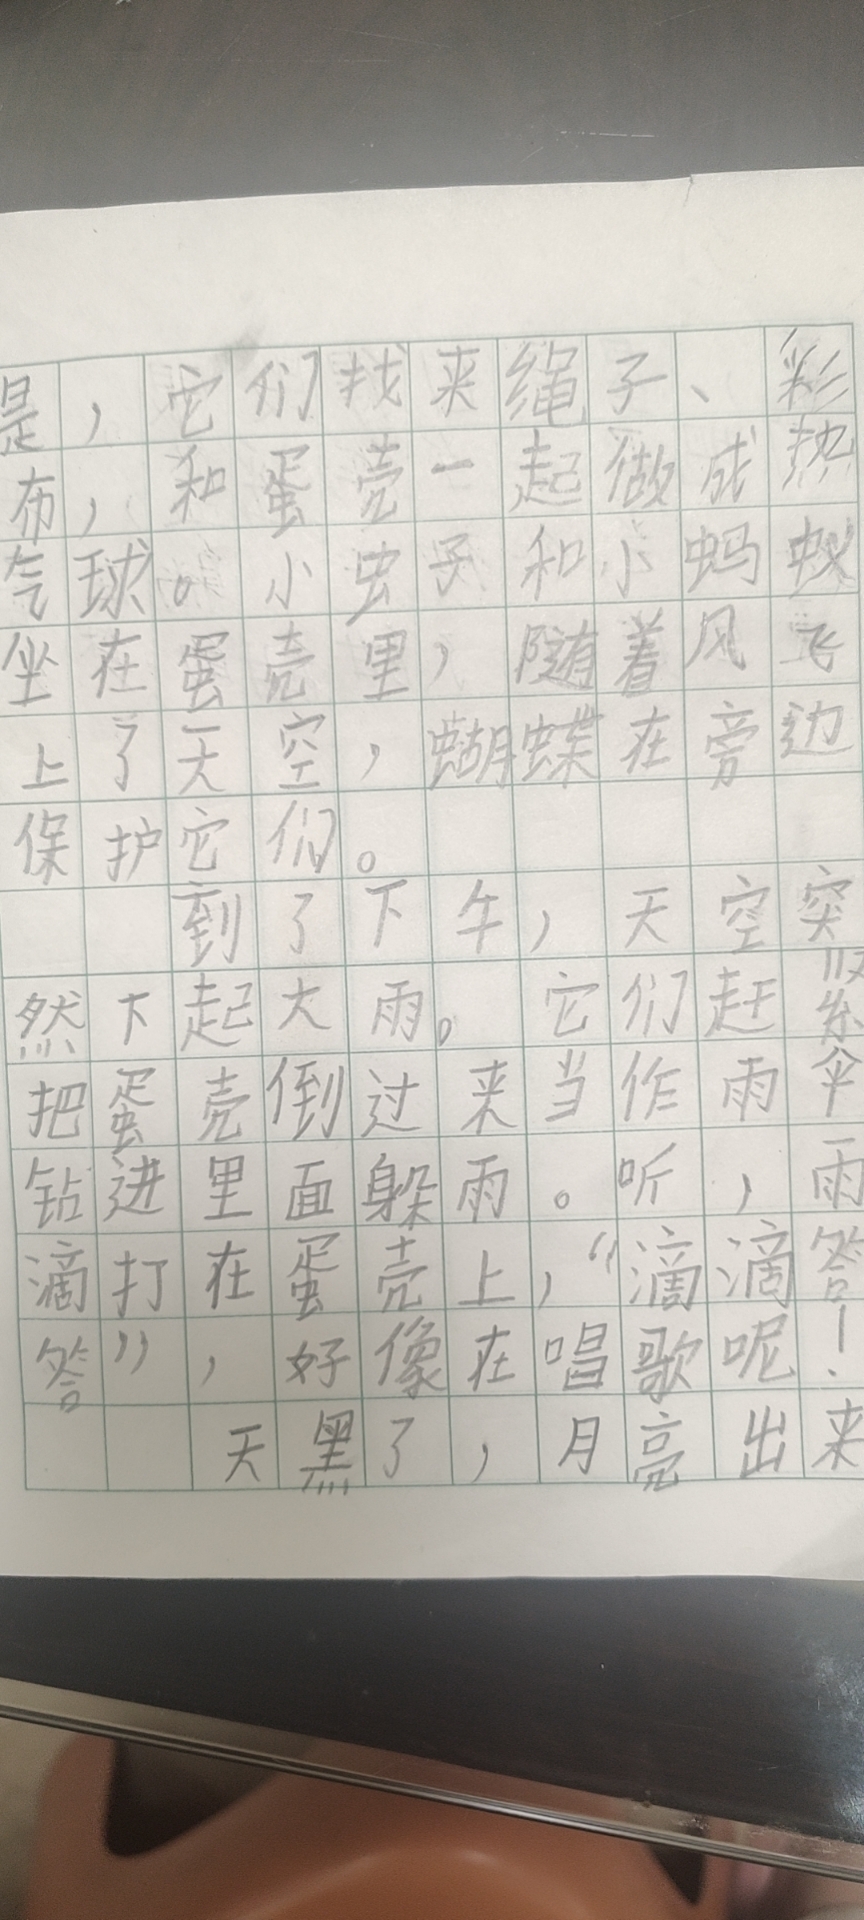 是，它们找来绳子、彩
布，和蛋壳一起做成热
气球。小虫子和小蚂蚁
坐在蛋壳里，随着风飞
上了天空，蝴蝶在旁边
保护它们。
到了下午，天空突
然下起大雨。它们赶紧
把蛋壳倒过来当作雨伞
钻进里面躲雨。听，雨
滴打在蛋壳上，“滴滴答
答”，好像在唱歌呢！
天黑了，月亮出来